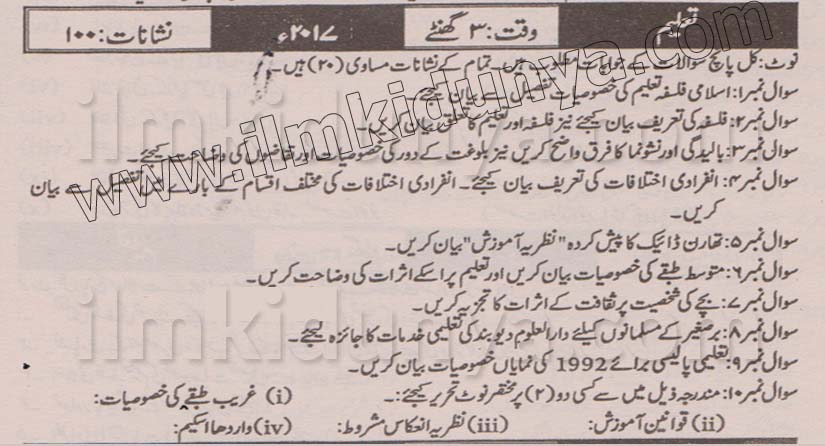 تعلیم وقت: ۳ گھنٹے ۲۰۱۷ء نشانات: ۱۰۰
نوٹ: کل پانچ سوالات کے جوابات مطلوب ہیں۔ تمام کے نشانات مساوی (۲۰) ہیں۔
سوال نمبر۱: اسلامی فلسفہ تعلیم کی خصوصیات تفصیل سے بیان کیجئے۔
سوال نمبر۲: فلسفہ کی تعریف بیان کیجئے نیز فلسفہ اور تعلیم کا تعلق بیان کریں۔
سوال نمبر۳: بالیدگی اور نشوونما کا فرق واضح کریں نیز بلوغت کے دور کی خصوصیات اور تقاضوں کی وضاحت کیجئے۔
سوال نمبر۴: انفرادی اختلافات کی تعریف بیان کیجئے۔ انفرادی اختلافات کی مختلف اقسام کے بارے میں تفصیل سے بیان
کریں۔
سوال نمبر۵: تھارن ڈائیک کا پیش کردہ "نظریہ آموزش" بیان کریں۔
سوال نمبر۶: متوسط طبقے کی خصوصیات بیان کریں اور تعلیم پر اسکے اثرات کی وضاحت کریں۔
سوال نمبر۷: بچے کی شخصیت پر ثقافت کے اثرات کا تجزیہ کریں۔
سوال نمبر۸: برصغیر کے مسلمانوں کیلئے دارالعلوم دیوبند کی تعلیمی خدمات کا جائزہ لیجئے۔
سوال نمبر۹: تعلیمی پالیسی برائے 1992 کی نمایاں خصوصیات بیان کریں۔
سوال نمبر۱۰: مندرجہ ذیل میں سے کسی دو (۲) پر مختصر نوٹ تحریر کیجئے:۔ (i) غریب طبقے کی خصوصیات:
(ii) قوانین آموزش: (iii) نظریہ انعکاس مشروط: (iv) واردھا اسکیم:
www.ilmkidunya.com
ilmkidunya.com
ilmkidunya.com
ilmkidunya.com